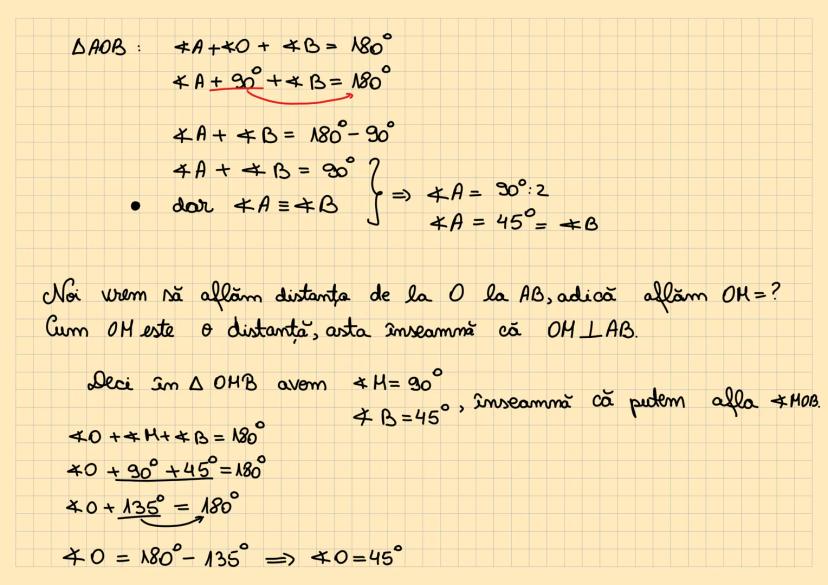 ∆AOB: ∢A+∢O+∢B=180°
∢A+90°+∢B=180°
∢A+∢B=180°-90°
∢A+∢B=90°
• dar ∢A≡∢B } ⇒ ∢A=90°:2
∢A=45°=∢B
Noi vrem să aflăm distanța de la O la AB, adică aflăm OM=?
Cum OM este o distanță, asta înseamnă că OM⊥AB.
Deci în ∆ OMB avem ∢M=90°
∢B=45°, înseamnă că putem afla ∢MOB.
∢O+∢M+∢B=180°
∢O+90°+45°=180°
∢O+135°=180°
∢O=180°-135° ⇒ ∢O=45°